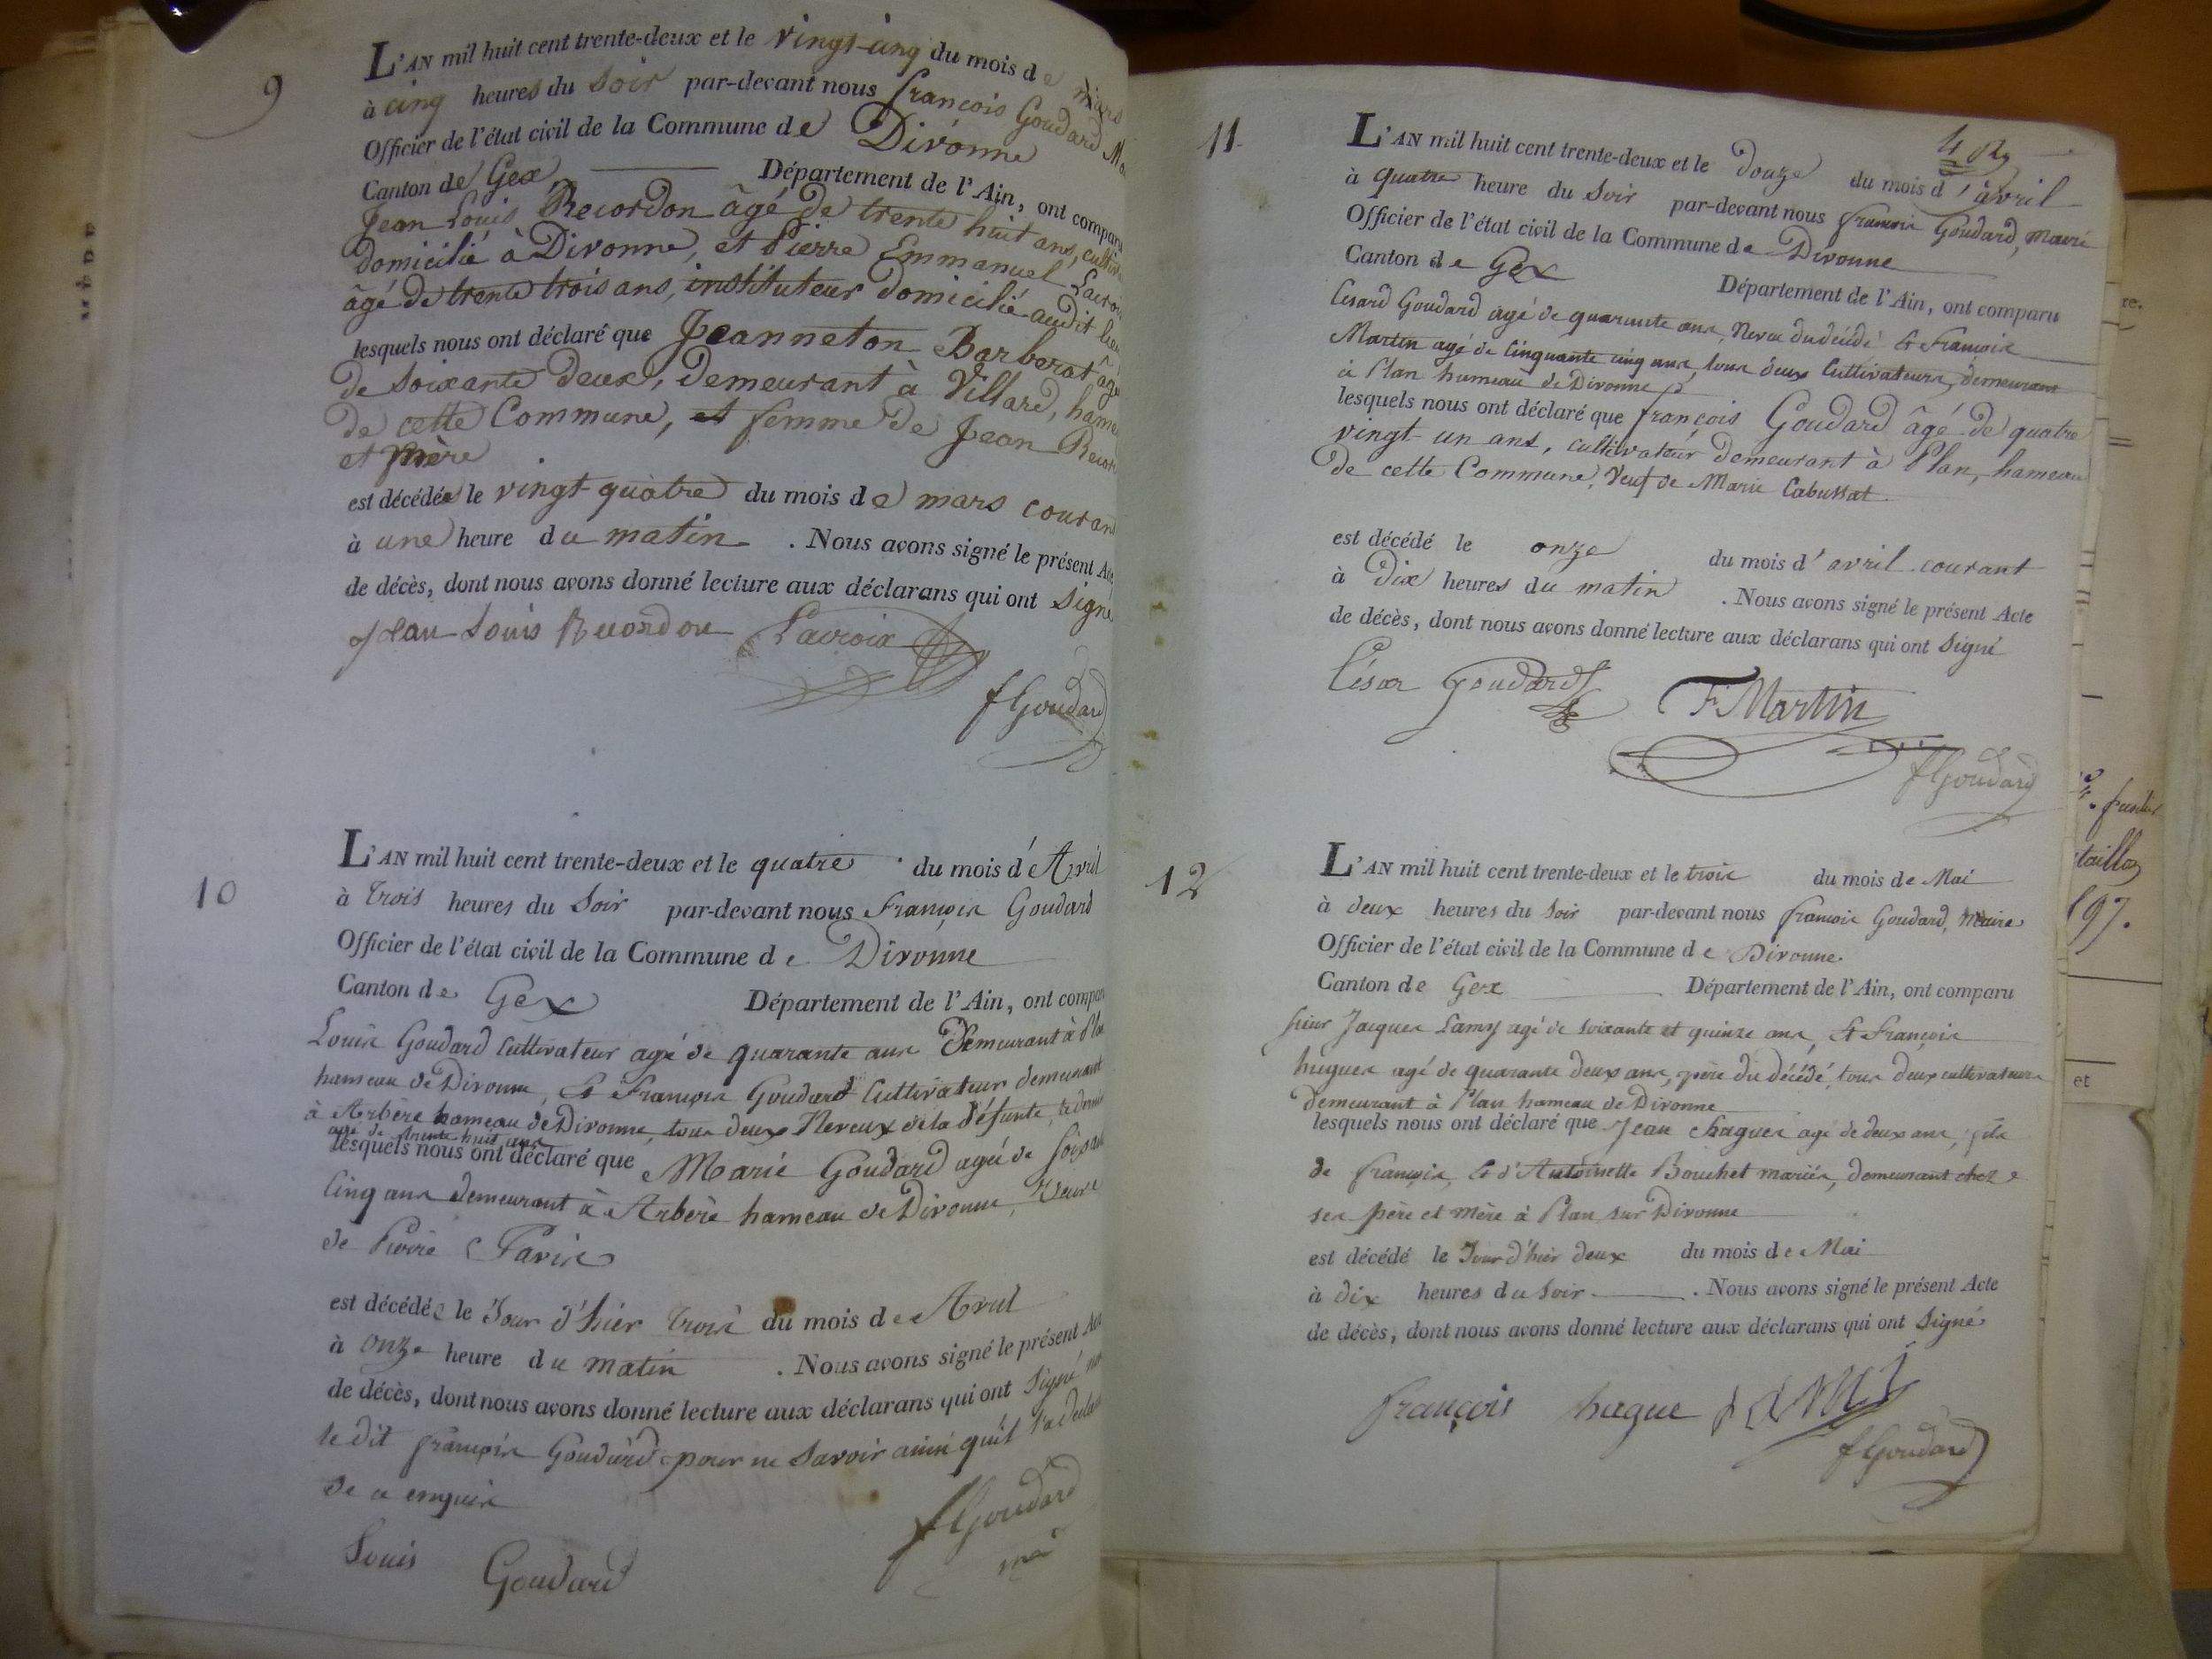 9
L'AN mil huit cent trente-deux et le vingt-cinq du mois de mars
à cinq heures du soir par-devant nous françois Goudard
Officier de l'état civil de la Commune de Divonne
Canton de Gex Département de l'Ain, ont comparu
Jean Louis Recordon âgé de trente huit ans,
domicilié à Divonne, et Pierre Emmanuel Lacroix
âgé de trente trois ans, instituteur domicilié audit lieu
lesquels nous ont déclaré que Jeanneton Barberat
de soixante deux, demeurant à Villard, hameau
de cette Commune, et femme de Jean
et mère
est décédée le vingt-quatre du mois de mars courant
à une heure du matin . Nous avons signé le présent Acte
de décès, dont nous avons donné lecture aux déclarans qui ont signé
Jean Louis Recordon Lacroix
fGoudard
10
L'AN mil huit cent trente-deux et le quatre du mois d'Avril
à trois heures du Soir par-devant nous François Goudard
Officier de l'état civil de la Commune de Divonne
Canton de Gex Département de l'Ain, ont comparu
Louis Goudard Cultivateur agé de quarante ans Demeurant à Plan
hameau de Divonne, Et François Goudard Cultivateur demeurant
à Arbère hameau de Divonne, tous deux Neveux de la défunte, le dernier
agé de trente huit ans
lesquels nous ont déclaré que Marie Goudard agée de soixante
Cinq ans demeurant à Arbère hameau de Divonne, Veuve
de Pierre Paris
est décédée le Jour d'hier trois du mois de Avril
à onze heure du matin . Nous avons signé le présent Acte
de décès, dont nous avons donné lecture aux déclarans qui ont Signé non
le dit françois Goudard pour ne Savoir ainsi qu'il l'a déclaré
de ce enquis
Louis Goudard
fGoudard
11
L'AN mil huit cent trente-deux et le douze du mois d'avril
à quatre heure du Soir par-devant nous françois Goudard, maire
Officier de l'état civil de la Commune de Divonne
Canton de Gex Département de l'Ain, ont comparu
Cesard Goudard agé de quarante ans, Neveu du décédé Et François
Martin agé de Cinquante cinq ans, tous deux Cultivateurs, demeurant
à Plan hameau de Divonne
lesquels nous ont déclaré que françois Goudard âgé de quatre
vingt-un ans, cultivateur demeurant à Plan, hameau
de cette Commune, Veuf de Marie Cabussat
est décédé le onze du mois d'avril courant
à Dix heures du matin . Nous avons signé le présent Acte
de décès, dont nous avons donné lecture aux déclarans qui ont Signé
César Goudard F Martin
fGoudard
12
L'AN mil huit cent trente-deux et le trois du mois de Mai
à deux heures du Soir par-devant nous françois Goudard, Maire
Officier de l'état civil de la Commune de Divonne
Canton de Gex Département de l'Ain, ont comparu
sieur Jacques Lamy agé de soixante et quinze ans, Et François
hugues agé de quarante deux ans, père du décédé, tous deux cultivateurs
Demeurant à Plan hameau de Divonne
lesquels nous ont déclaré que Jean hugues agé de deux ans, fils
de françois, Et d'Antoinette Bouchet mariés, demeurant chez
ses père et mère à Plan sur Divonne
est décédé le Jour d'hier deux du mois de Mai
à dix heures du Soir . Nous avons signé le présent Acte
de décès, dont nous avons donné lecture aux déclarans qui ont Signé
françois hugue
fGoudard
197.
et